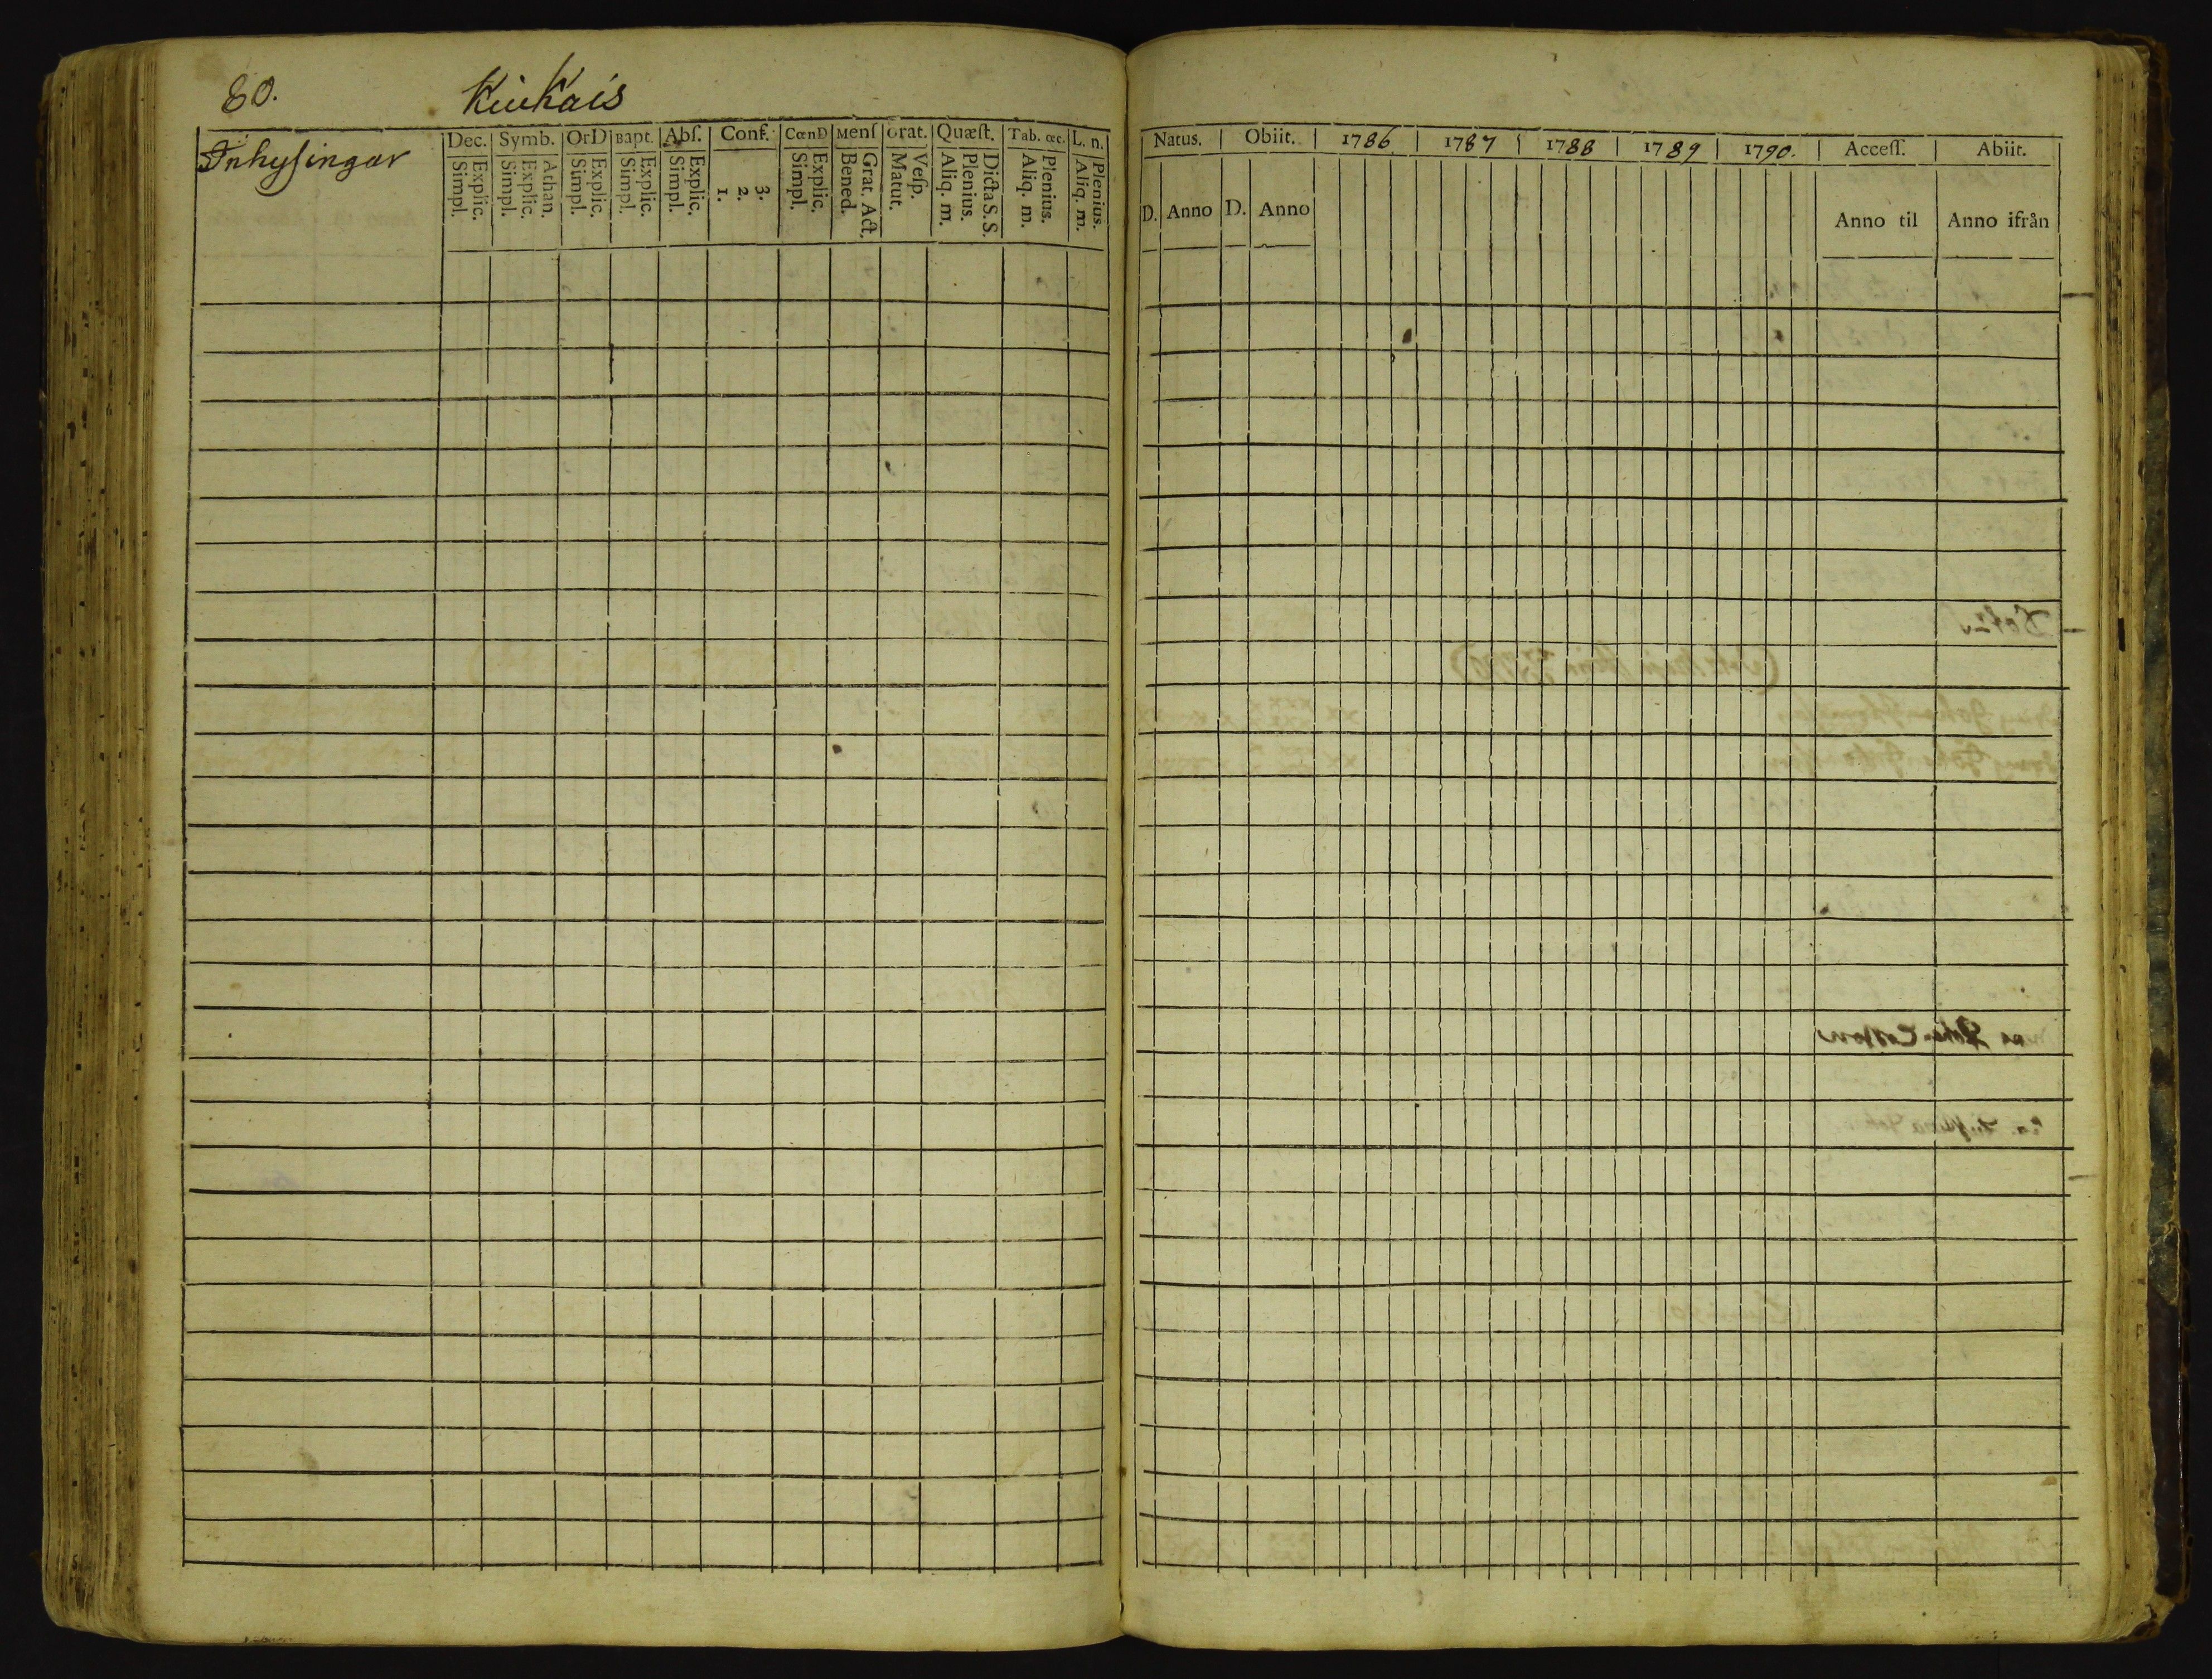 80. Kiukais
Inhysingar
Dec. Symb. OrD Bapt. Abſ. Conf. CœnD Menſ Grat. Quæſt. Tab. œc. L. n.
Explic. Simpl. Athan. Explic. Simpl. Explic. Simpl. Explic. Simpl. Explic. Simpl. 3. 2. 1. Explic. Simpl. Grat. Act. Bened. Veſp. Matut. Dicta S. S. Plenius. Aliq. m. Plenius. Aliq. m. Plenius. Aliq. m.
Natus. Obiit. 1786 1787 1788 1789 1790. Acceſſ. Abiit.
D. Anno D. Anno Anno til Anno ifrån